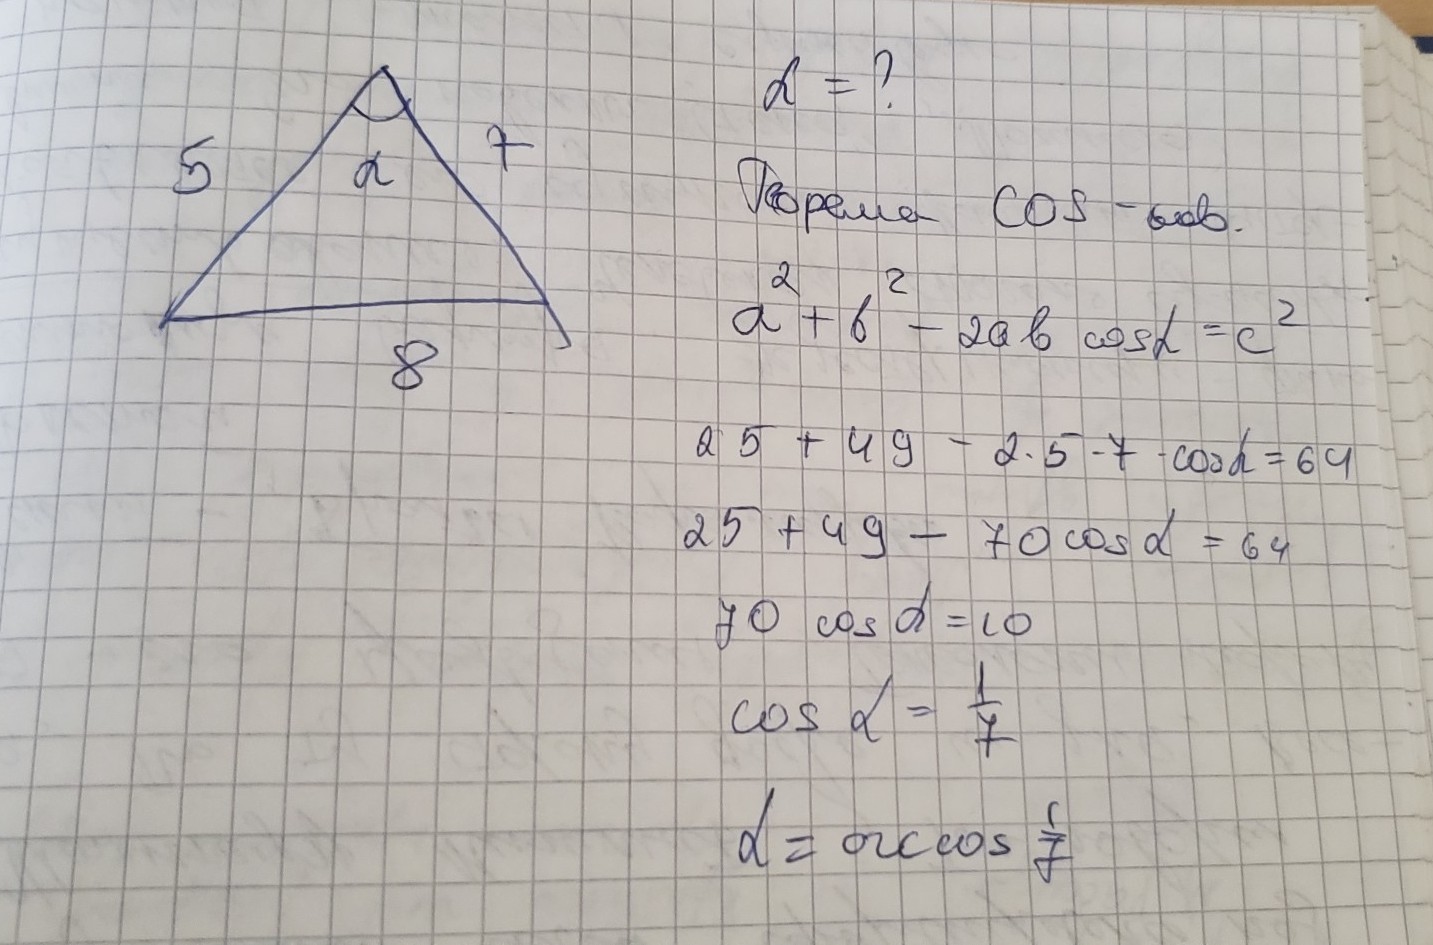 5
7
α
8
α = ?
Теорема cos-нов.
a² + b² - 2ab cosα = c²
25 + 49 - 2·5·7·cosα = 64
25 + 49 - 70cosα = 64
70 cosα = 10
cos α = 1/7
α = arccos 1/7